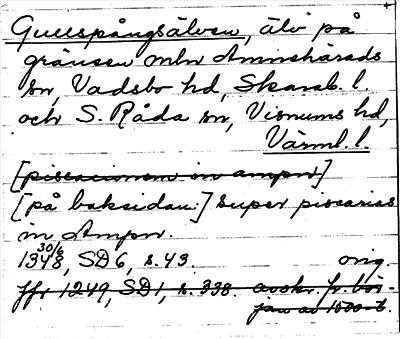 Gullspångsälven, älv på
gränsen mln Amnehärads
sn, Vadsbo hd, Skarab. l.
och S. Råda sn, Visnums hd,
Värml. l.
[piscacionem in ampn]
[på baksidan:] super piscarias
in Ampn.
30/6
1348, SD 6, s. 43. orig.
jfr 1249, SD 1, s. 338. avskr. fr. bör-
jan av 1500-t.